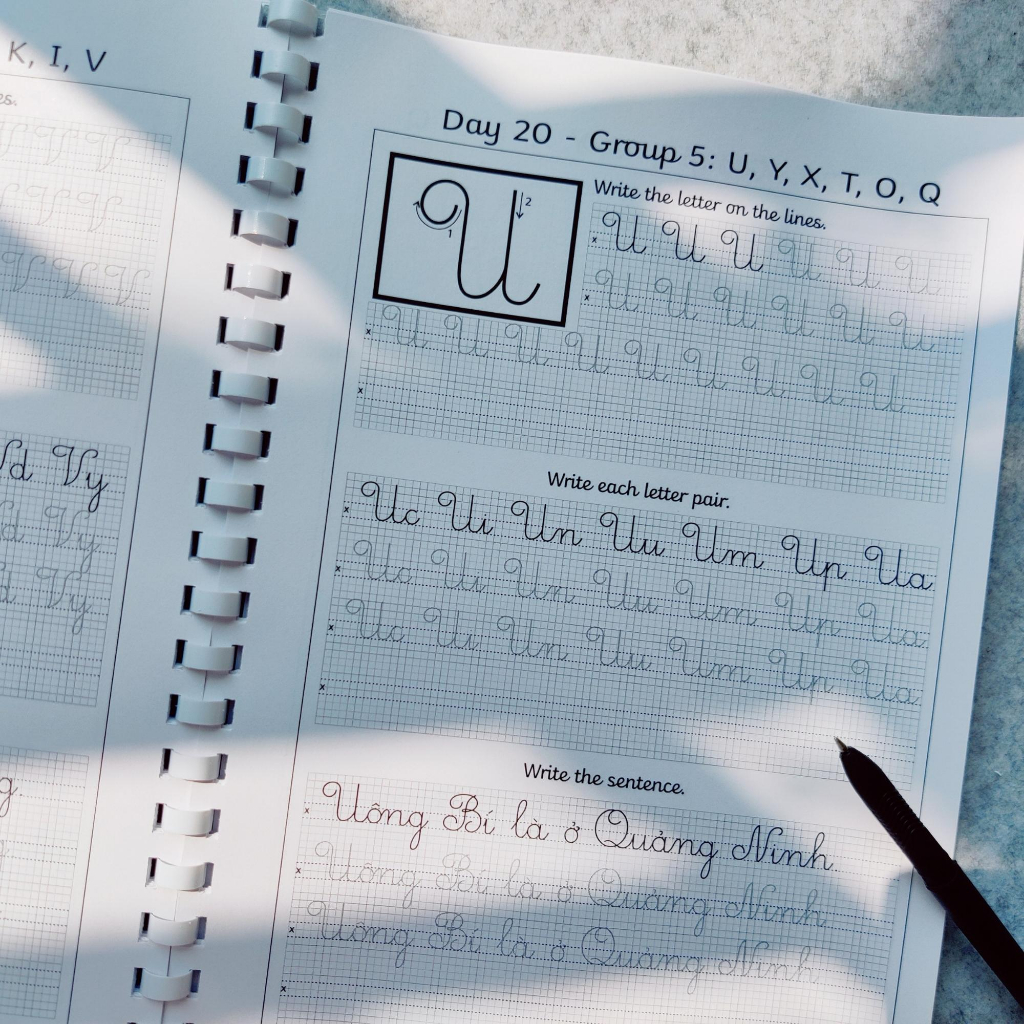 K, I, V
es.
Vd Vy
Vd Vy
d Vy
g
Day 20 - Group 5: U, Y, X, T, O, Q
U
1
2
Write the letter on the lines.
x U U U U U U
x U U U U U U
x U U U U U U U U U
x
Write each letter pair.
x Uc Ui Un Uu Um Up Ua
x Uc Ui Un Uu Um Up Ua
x Uc Ui Un Uu Um Up Ua
x
Write the sentence.
x Uông Bí là ở Quảng Ninh
x Uông Bí là ở Quảng Ninh
x Uông Bí là ở Quảng Ninh
x